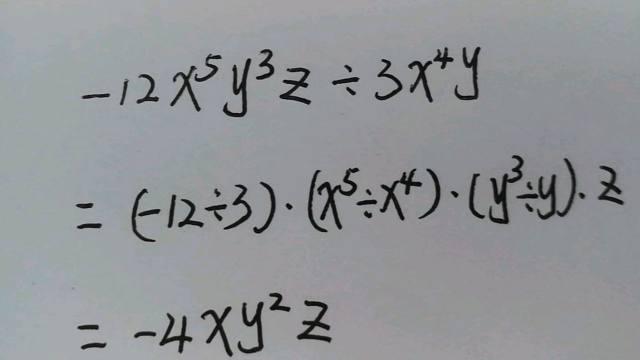 -12x⁵y³z÷3x⁴y
=(-12÷3)·(x⁵÷x⁴)·(y³÷y)·z
=-4xy²z